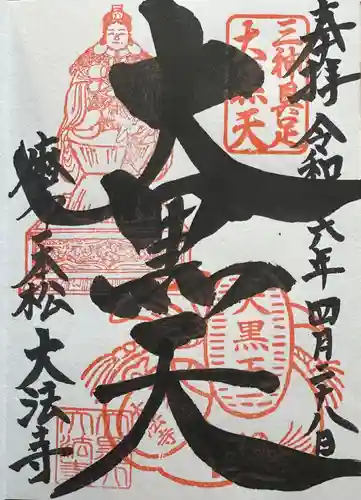 奉拝 令和六年四月二八日
三神具足
大黒天
大黒天
大黒天
大松 大法寺